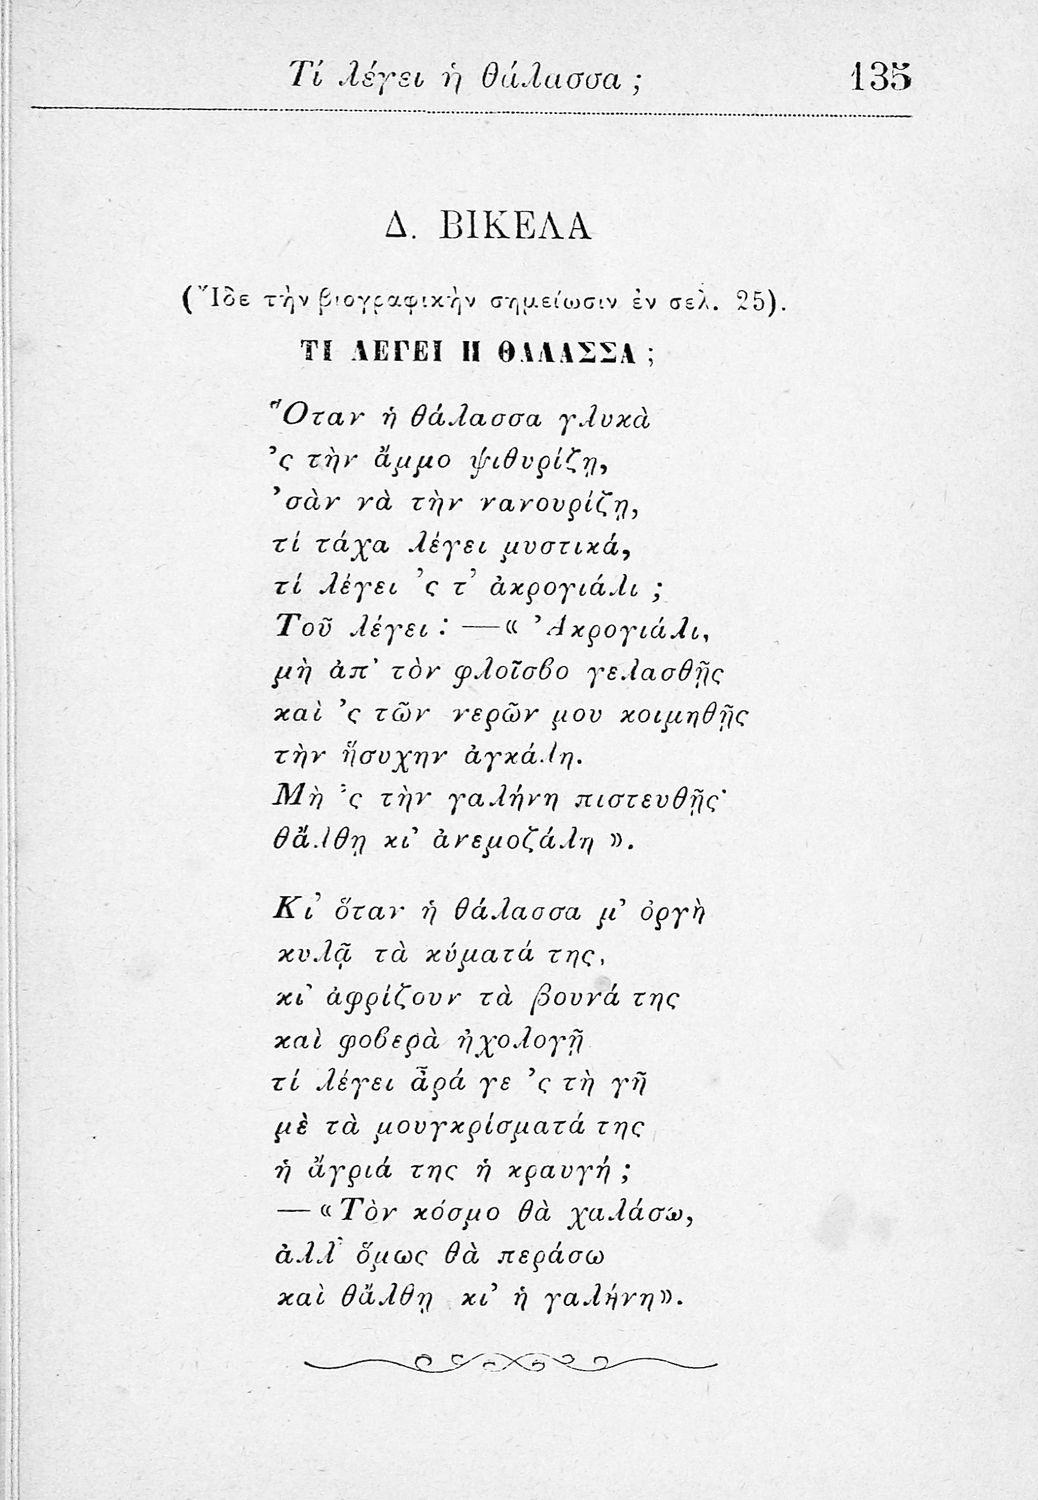 Τί λέγει ἡ θάλασσα ; 135
Δ. ΒΙΚΕΛΑ
(Ἴδε τὴν βιογραφικὴν σημείωσιν ἐν σελ. 25).
ΤΙ ΛΕΓΕΙ Η ΘΑΛΑΣΣΑ ;
Ὅταν ἡ θάλασσα γλυκὰ
’ς τὴν ἄμμο ψιθυρίζῃ,
’σὰν νὰ τὴν νανουρίζῃ,
τί τάχα λέγει μυστικά,
τί λέγει ’ς τ’ ἀκρογιάλι ;
Τοῦ λέγει : —« Ἀκρογιάλι,
μὴ ἀπ’ τὸν φλοῖσβο γελασθῇς
καὶ ’ς τῶν νερῶν μου κοιμηθῇς
τὴν ἥσυχην ἀγκάλη.
Μὴ ’ς τὴν γαλήνη πιστευθῇς·
θἄλθῃ κι’ ἀνεμοζάλη ».
Κι’ ὅταν ἡ θάλασσα μ’ ὀργὴ
κυλᾷ τὰ κύματά της,
κι’ ἀφρίζουν τὰ βουνά της
καὶ φοβερὰ ἠχολογῇ
τί λέγει ἆρά γε ’ς τὴ γῆ
μὲ τὰ μουγκρίσματά της
ἡ ἄγριά της ἡ κραυγή ;
—«Τὸν κόσμο θὰ χαλάσω,
ἀλλ’ ὅμως θὰ περάσω
καὶ θἄλθῃ κι’ ἡ γαλήνη».